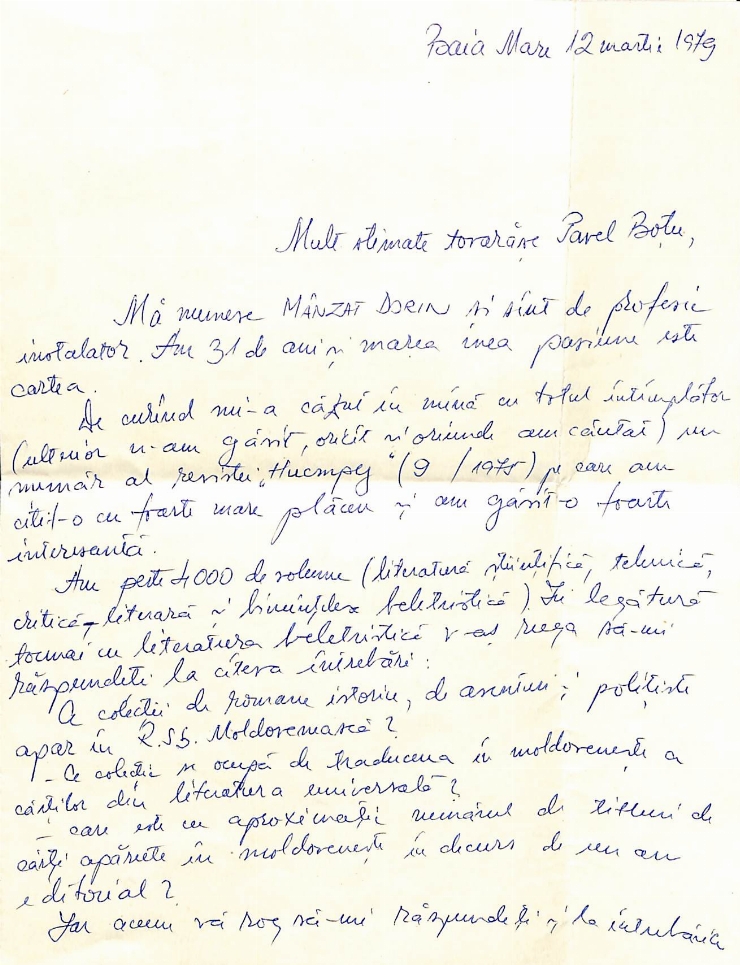 Baia Mare 12 martie 1979
Mult stimate tovarășe Pavel Boțu,
Mă numesc MÂNZAT DORIN și sînt de profesie
instalator. Am 31 de ani și marea mea pasiune este
cartea.
De curînd mi-a căzut în mînă cu totul întîmplător
(ulterior n-am găsit, oricît și oriunde am căutat) un
număr al revistei „Нистру" (9 / 1975) pe care am
citit-o cu foarte mare plăcere și am găsit-o foarte
interesantă.
Am peste 4000 de volume (literatură științifică, tehnică,
critică literară și bineînțeles beletristică). În legătură
tocmai cu literatura beletristică v-aș ruga să-mi
răspundeți la cîteva întrebări:
Ce colecții de romane istorice, de aventuri și polițiste
apar în R.S.S. Moldovenească?
- Ce colecție se ocupă de traducerea în moldovenește a
cărților din literatura universală?
- care este cu aproximație numărul de titluri de
cărți apărute în moldovenește în decurs de un an
editorial?
Iar acum vă rog să-mi răspundeți și la întrebările